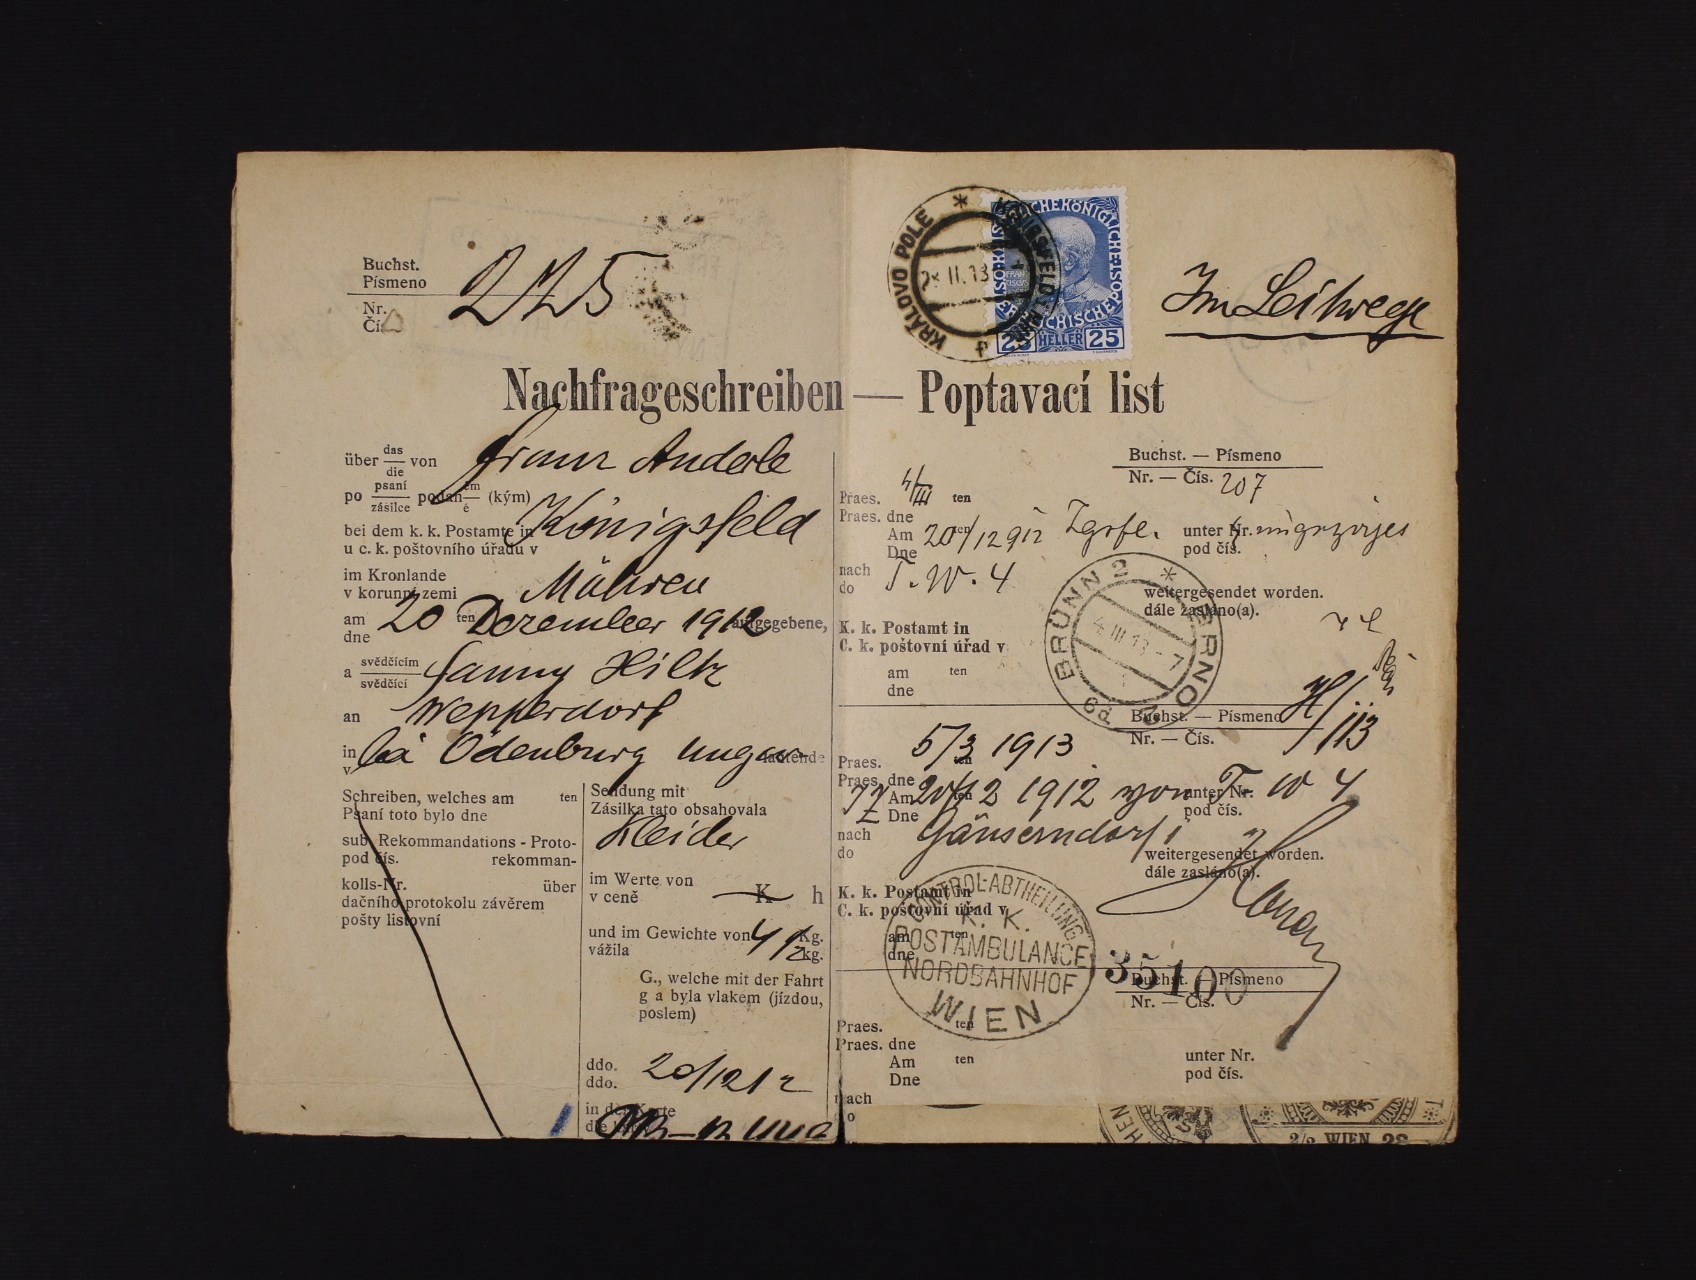 Buchst.
Písmeno
Nr.
Čís.
225
KRÁLOVO POLE
II.13
KAISERLICHE KÖNIGLICHE ÖSTERREICHISCHE POST
25 HELLER 25
Im Leitwege
Nachfrageschreiben — Poptavací list
über das von Franz Anderle
die
po psaní podaném (kým)
zásilce é
bei dem k. k. Postamte in Königsfeld
u c. k. poštovního úřadu v
im Kronlande
v korunní zemi Mähren
am 20 ten Dezember 1912 aufgegebene,
dne
a svědčícím Fanny Hiltz
svědčící
an Wepperdorf
in bei Ödenburg Ungarn lautende
v
Schreiben, welches am ten
Psaní toto bylo dne
sub Rekommandations - Proto-
pod čís. rekomman-
kolls-Nr. über
dačního protokolu závěrem
pošty listovní
Sendung mit
Zásilka tato obsahovala
Kleider
im Werte von
v ceně — K h
und im Gewichte von 4 1/2 Kg.
vážila kg.
G., welche mit der Fahrt
g a byla vlakem (jízdou,
poslem)
ddo. 20/12 12
ddo.
in der Karte
Buchst. — Písmeno
Nr. — Čís. 207
Praes. 4/III ten
Praes. dne
Am 20/12 912 ten unter Nr.
Dne pod čís.
nach T. W. 4
do
weitergesendet worden.
dále zasláno(a).
K. k. Postamt in
C. k. poštovní úřad v
am ten
dne
BRÜNN 2 * BRNO 2
4 III 13 - 7
6d
Buchst. — Písmeno
Nr. — Čís. 113
Praes. 5/3 1913 ten
Praes. dne
Am 20/12 1912 von T W 4 unter Nr.
Dne pod čís.
nach Gänserndorf
do
weitergesendet worden.
dále zasláno(a).
K. k. Postamt in
C. k. poštovní úřad v
am ten
dne
CONTROL-ABTHEILUNG
K. K.
POSTAMBULANCE
NORDBAHNHOF
WIEN
35100
Buchst. — Písmeno
Nr. — Čís.
Praes. ten
Praes. dne
Am ten unter Nr.
Dne pod čís.
nach
do
WIEN